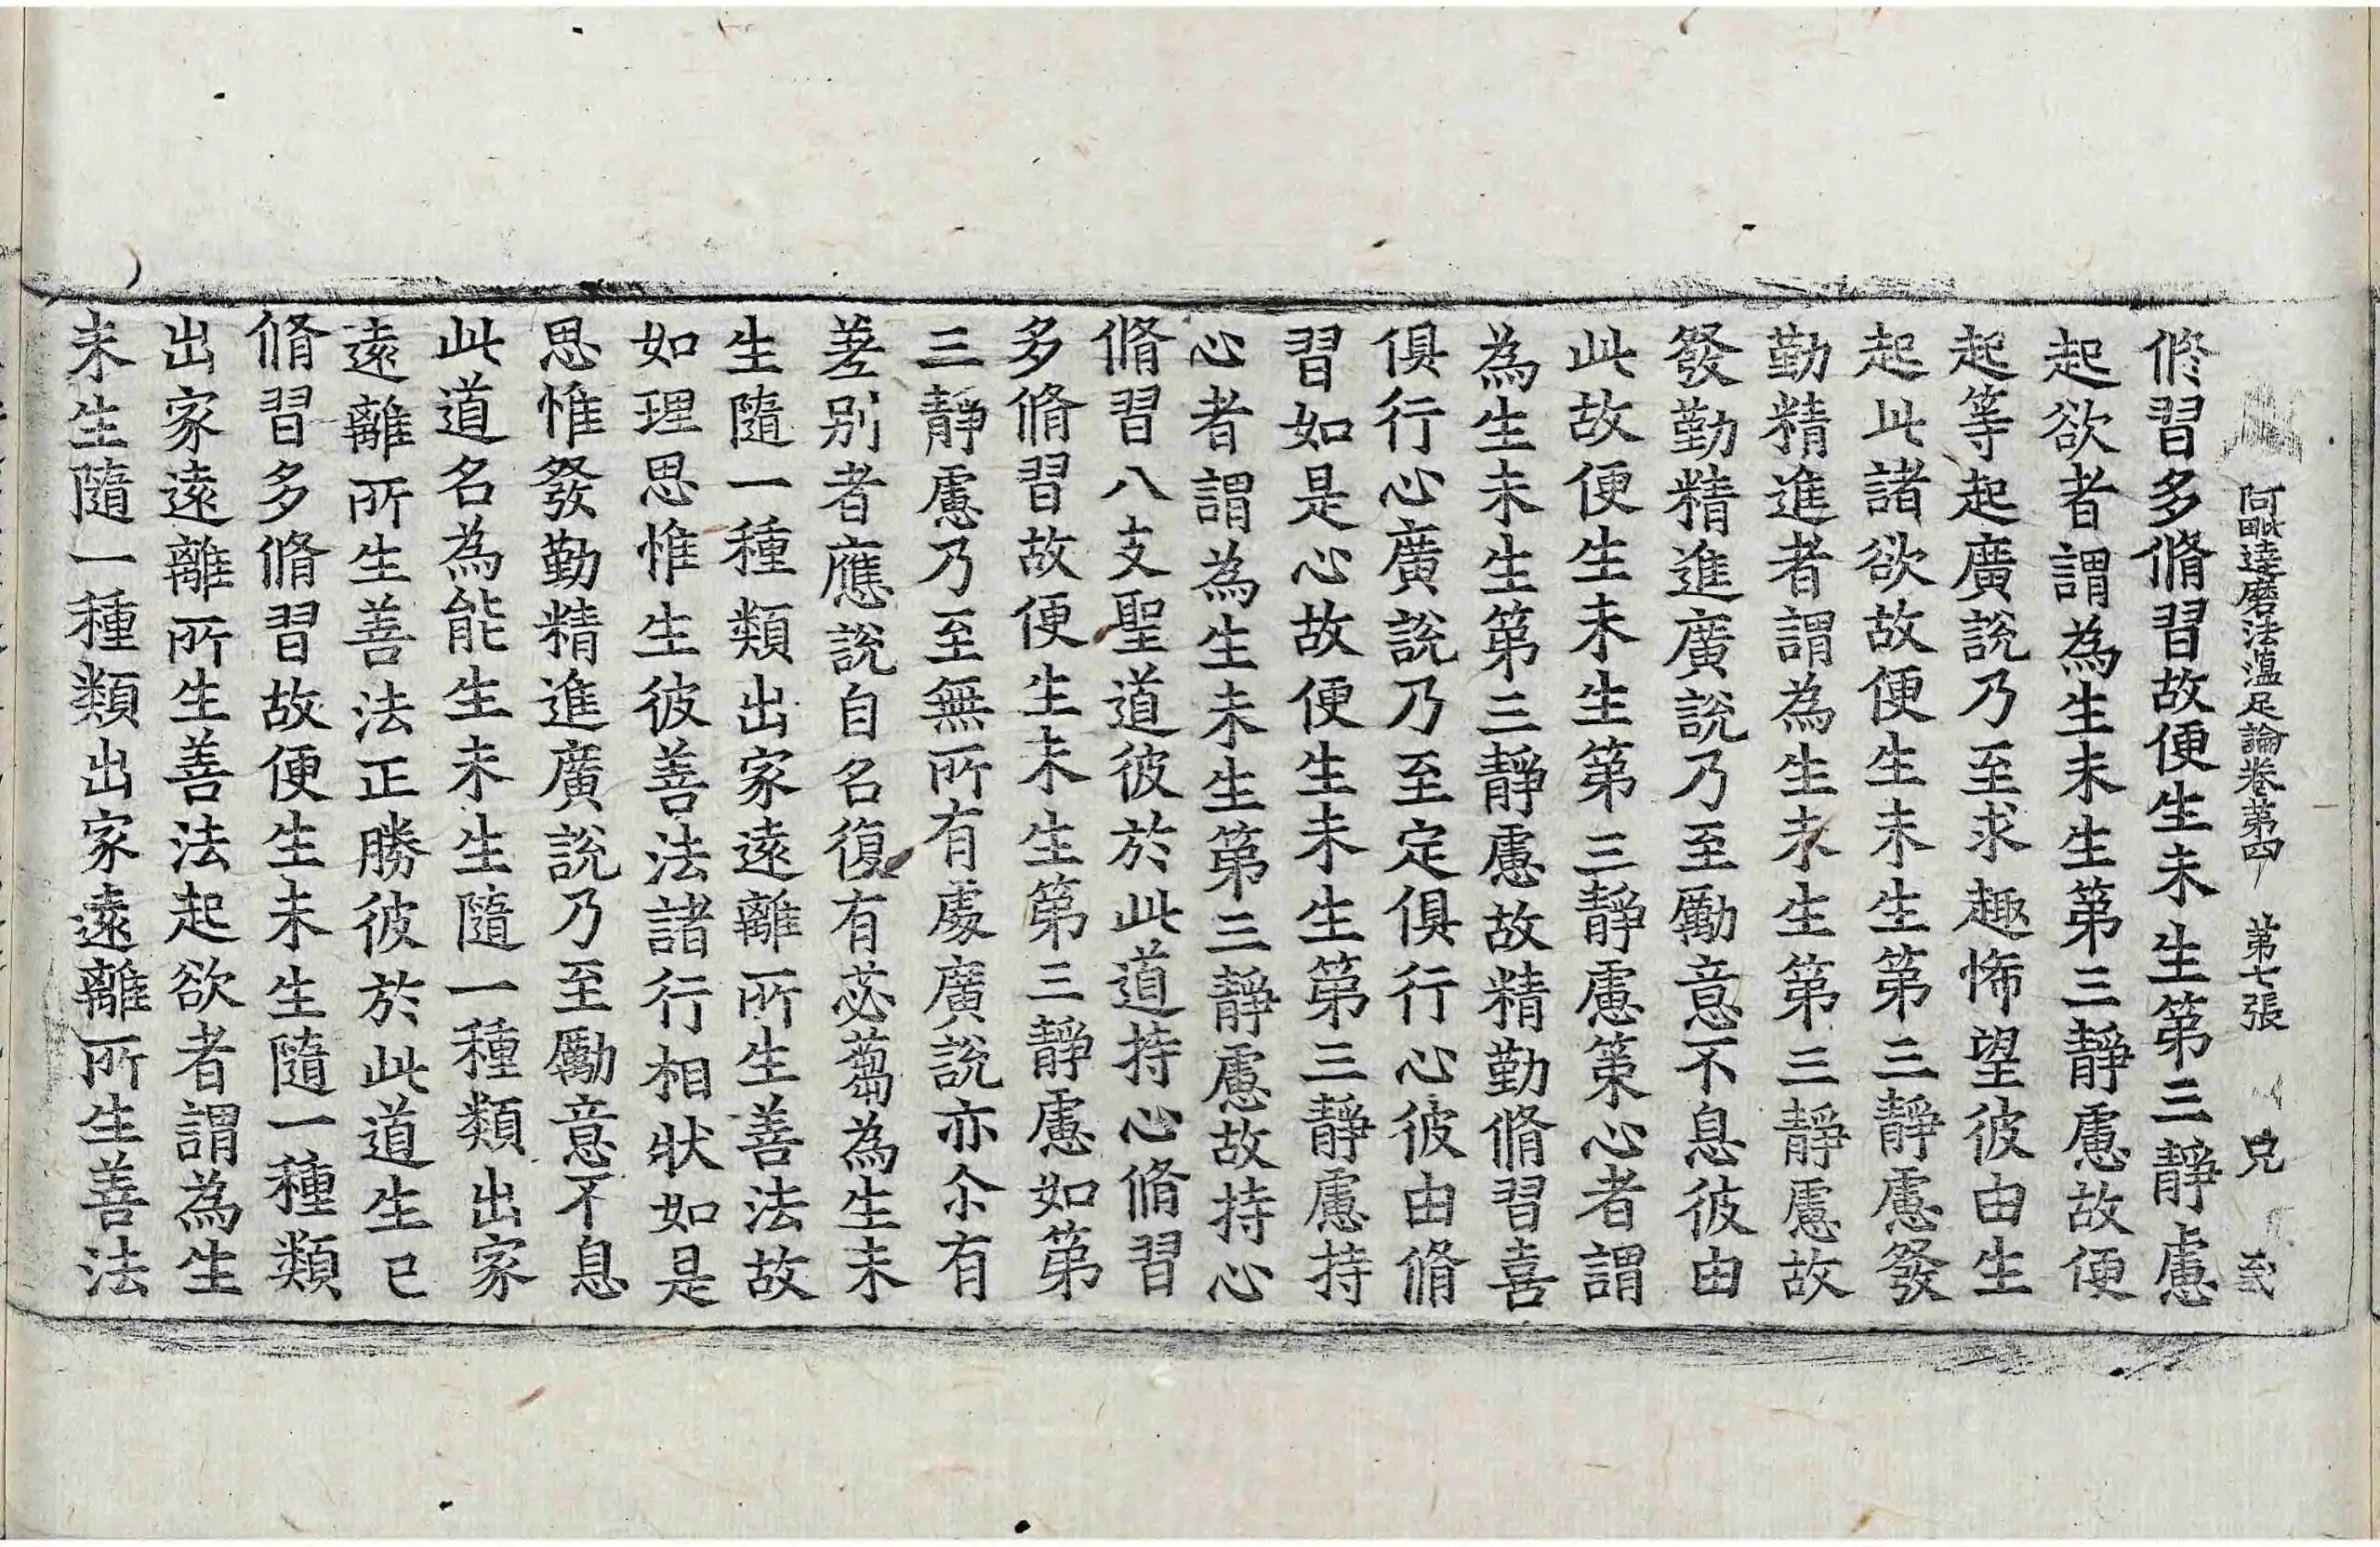 阿毗達磨法蘊足論卷第四　第七張　兄
修習多脩習故便生未生第三靜慮
起欲者謂為生未生第三靜慮故便
起等起廣說乃至求趣悕望彼由生
起此諸欲故便生未生第三靜慮發
勤精進者謂為生未生第三靜慮故
發勤精進廣說乃至勵意不息彼由
此故便生未生第三靜慮策心者謂
為生未生第三靜慮故精勤脩習喜
俱行心廣說乃至定俱行心彼由脩
習如是心故便生未生第三靜慮持
心者謂為生未生第三靜慮故持心
脩習八支聖道彼於此道持心脩習
多脩習故便生未生第三靜慮如第
三靜慮乃至無所有處廣說亦尒有
差別者應說自名復有苾蒭為生未
生隨一種類出家遠離所生善法故
如理思惟生彼善法諸行相狀如是
思惟發勤精進廣說乃至勵意不息
此道名為能生未生隨一種類出家
遠離所生善法正勝彼於此道生已
脩習多脩習故便生未生隨一種類
出家遠離所生善法起欲者謂為生
未生隨一種類出家遠離所生善法